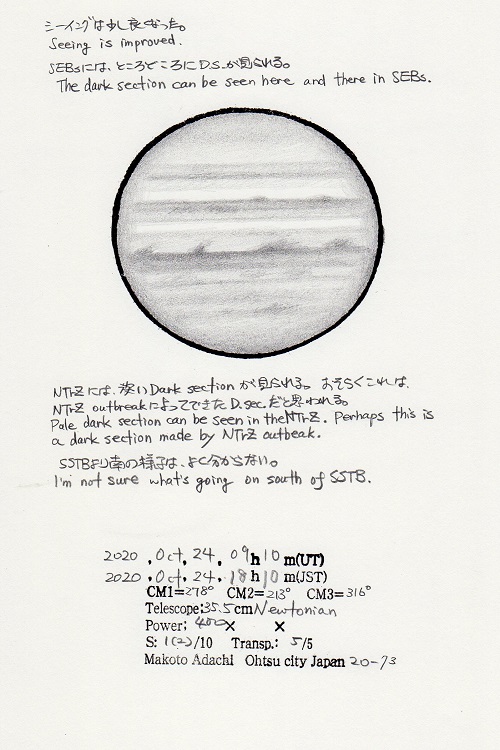 シーイングは少し良くなった。
Seeing is improved.
SEBsには、ところどころにD.S.が見られる。
The dark section can be seen here and there in SEBs.
NTrZには、淡いDark sectionが見られる。おそらくこれは、
NTrZ outbreakによってできたD.sec.だと思われる。
Pale dark section can be seen in the NTrZ. Perhaps this is
a dark section made by NTrZ outbeak.
SSTBより南の様子は、よく分からない。
I'm not sure what's going on south of SSTB.
2020 , Oct, 24, 09h 10 m(UT)
2020 , Oct, 24, 18h 10 m(JST)
CM1=278° CM2=213° CM3=316°
Telescope:35.5cm Newtonian
Power: 400× ×
S: 1(2)/10 Transp.: 5/5
Makoto Adachi Ohtsu city Japan 20-73